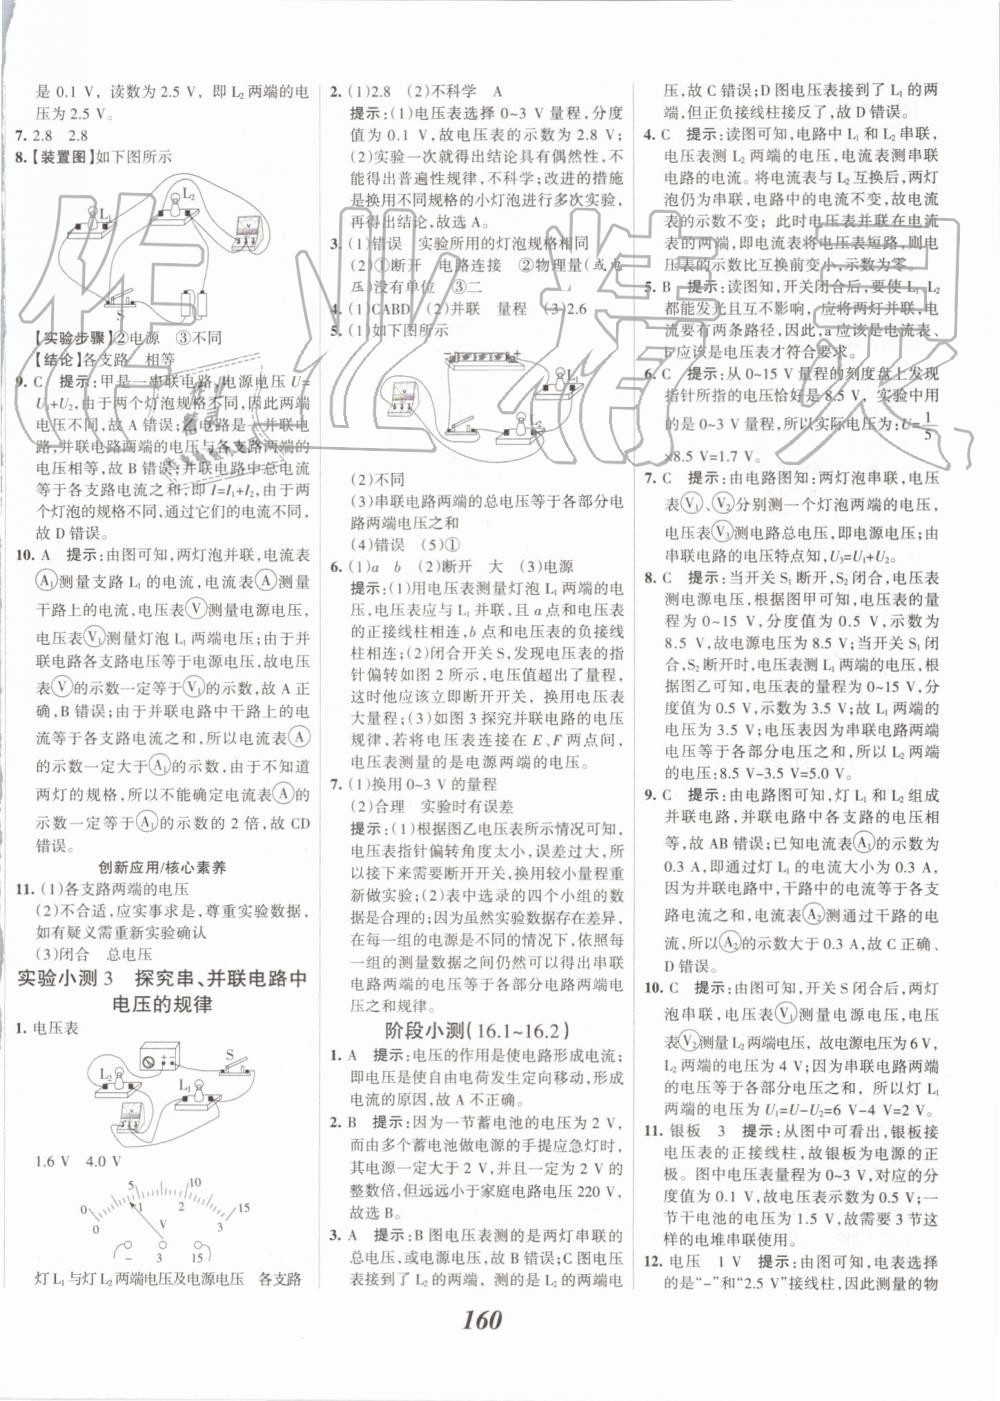 是 0.1 V，读数为 2.5 V，即 L₂ 两端的电
压为 2.5 V。
7. 2.8　2.8
8.【装置图】如下图所示
L₁
L₂
S
【实验步骤】②电源　③不同
【结论】各支路　相等
9. C　提示：甲是一串联电路，电源电压 U=
U₁+U₂，由于两个灯泡规格不同，因此两端
电压不同，故 A 错误；乙电路是一并联电
路，并联电路两端的电压与各支路两端的
电压相等，故 B 错误；并联电路中总电流
等于各支路电流之和，即 I=I₁+I₂，由于两
个灯泡的规格不同，通过它们的电流不同，
故 D 错误。
10. A　提示：由图可知，两灯泡并联，电流表
Ⓐ₁测量支路 L₁ 的电流，电流表Ⓐ测量
干路上的电流，电压表Ⓥ测量电源电压，
电压表Ⓥ₁测量灯泡 L₁ 两端电压；由于并
联电路各支路电压等于电源电压，故电压
表Ⓥ的示数一定等于Ⓥ₁的示数，故 A 正
确，B 错误；由于并联电路中干路上的电
流等于各支路电流之和，所以电流表Ⓐ
的示数一定大于Ⓐ₁的示数，由于不知道
两灯的规格，所以不能确定电流表Ⓐ的
示数一定等于Ⓐ₁的示数的 2 倍，故 CD
错误。
创新应用/核心素养
11. (1)各支路两端的电压
(2)不合适，应实事求是，尊重实验数据，
如有疑义需重新实验确认
(3)闭合　总电压
实验小测 3　探究串、并联电路中
电压的规律
1. 电压表
L₂
L₁
S
1.6 V　4.0 V
0 5 10 15
0 1 2 3
V
- 3 15
灯 L₁与灯 L₂两端电压及电源电压　各支路
2. (1)2.8　(2)不科学　A
提示：(1)电压表选择 0~3 V 量程，分度
值为 0.1 V，故电压表的示数为 2.8 V；
(2)实验一次就得出结论具有偶然性，不
能得出普遍性规律，不科学；改进的措施
是换用不同规格的小灯泡做多次实验，
再得出结论，故选 A。
3. (1)错误　实验所用的灯泡规格相同
(2)①断开　电路连接　②物理量(或电
压)没有单位　③二
4. (1)CABD　(2)并联　量程　(3)2.6
5. (1)如下图所示
(2)不同
(3)串联电路两端的总电压等于各部分电
路两端电压之和
(4)错误　(5)①
6. (1)a　b　(2)断开　大　(3)电源
提示：(1)用电压表测量灯泡 L₁ 两端的电
压，电压表应与 L₁ 并联，且 a 点和电压表
的正接线柱相连，b 点和电压表的负接线
柱相连；(2)闭合开关 S，发现电压表的指
针偏转如图 2 所示，电压值超出了量程，
这时他应该立即断开开关，换用电压表
大量程；(3)如图 3 探究并联电路的电压
规律，若将电压表连接在 E、F 两点间，
电压表测量的是电源两端的电压。
7. (1)换用 0~3 V 的量程
(2)合理　实验时有误差
提示：(1)根据图乙电压表所示情况可知，
电压表指针偏转角度太小，误差过大，所
以接下来需要断开开关，换用较小量程重
新做实验；(2)表中选录的四个小组的数
据是合理的；因为虽然实验数据存在差异，
在每一组的电源是不同的情况下，依照每
一组的测量数据之间仍然可以得出串联
电路两端的电压等于各部分电路两端电
压之和规律
阶段小测(16.1~16.2)
1. A　提示：电压的作用是使电路形成电流；
即电压是使自由电荷发生定向移动，形成
电流的原因，故 A 不正确。
2. B　提示：因为一节蓄电池的电压为 2 V，
而由多个蓄电池做电源的手提应急灯时，
其电源一定大于 2 V，且应该等于 2 V 的
整数倍，但远远小于家庭电路电压 220 V，
故选 B。
3. A　提示：B 图电压表测的是两灯串联的
总电压，或电源电压，故 B 错误；C 图电压
表接到了 L₂ 的两端，测的是 L₂ 的两端电
压，故 C 错误；D 图电压表接到了 L₁ 的两
端，但正负接线柱接反了，故 D 错误。
4. C　提示：读图可知，电路中 L₁ 和 L₂ 串联，
电压表测 L₂ 两端的电压，电流表测串联
电路的电流。将电流表与 L₂ 互换后，两灯
泡仍为串联，电路中的电流不变，故电流
表的示数不变；此时电压表并联在电流表
的两端，即电流表将电压表短路，则电
压表的示数比互换前变小，示数为零。
5. B　提示：读图知，开关闭合后，要使 L₁、L₂
都能发光且互不影响，应将两灯并联，电
流要有两条路径，因此，a 应该是电流表、
b 应该是电压表才符合要求。
6. C　提示：从 0~15 V 量程的刻度盘上发现
指针所指的电压恰好是 8.5 V，实验中用
的是 0~3 V 量程，所以实际电压为：U=1/5
×8.5 V=1.7 V。
7. C　提示：由电路图知：两灯泡串联，电压
表Ⓥ₁、Ⓥ₂分别测一个灯泡两端的电压，
电压表Ⓥ₃测电路总电压，即电源电压，由
串联电路的电压特点知，U₃=U₁+U₂。
8. C　提示：当开关 S₁ 断开，S₂ 闭合，电压表
测电源电压，根据图甲可知，电压表的量
程为 0~15 V，分度值为 0.5 V，示数为
8.5 V，故电源电压为 8.5 V；当开关 S₁ 闭
合，S₂ 断开时，电压表测 L₁ 两端的电压，根
据图乙可知，电压表的量程为 0~15 V，分
度值为 0.5 V，示数为 3.5 V；故 L₁ 两端的
电压为 3.5 V；电压表因为串联电路两端
电压等于各部分电压之和，所以 L₂ 两端
的电压：8.5 V-3.5 V=5.0 V。
9. C　提示：由电路图可知，灯 L₁ 和 L₂ 组成
并联电路，并联电路中各支路的电压相
等，故 AB 错误；已知电流表Ⓐ₁的示数为
0.3 A，即通过灯 L₁ 的电流为 0.3 A，
因为并联电路中，干路中的电流等于各支
路电流之和，电流表Ⓐ₂测通过干路的电
流，所以Ⓐ₂的示数大于 0.3 A，故 C 正确、
D 错误。
10. C　提示：由图可知，开关 S 闭合后，两灯
泡串联，电压表Ⓥ₁测量电源电压，电压
表Ⓥ₂测量 L₂ 两端电压，故电源电压为 6 V，
L₂ 两端的电压为 4 V；因为串联电路两端
的电压等于各部分电压之和，所以灯 L₁
两端的电压为 U₁=U-U₂=6 V-4 V=2 V。
11. 银板　3　提示：从图中可看出，银板接
电压表的正接线柱，故银板为电源的正
极。图中电压表量程为 0~3 V，对应的分
度值为 0.1 V，故电压表示数为 0.5 V；一
节干电池的电压为 1.5 V，故需要 3 节这
样的电堆串联使用。
12. 电压　1 V　提示：由图可知，电表选择
的是“-”和“2.5 V”接线柱，因此测量的物
160
作业精灵